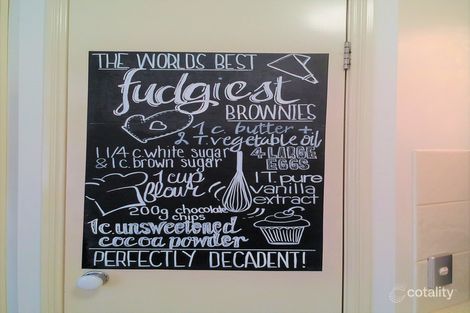 THE WORLDS BEST
fudgiest
BROWNIES
1 c. butter +
2 T. vegetable oil
1 1/4 c. white sugar
& 1 c. brown sugar
4 LARGE
EGGS
1 cup
flour
1 T. pure
vanilla
extract
200g chocolate
chips
1c. unsweetened
cocoa powder
PERFECTLY DECADENT!
cotality